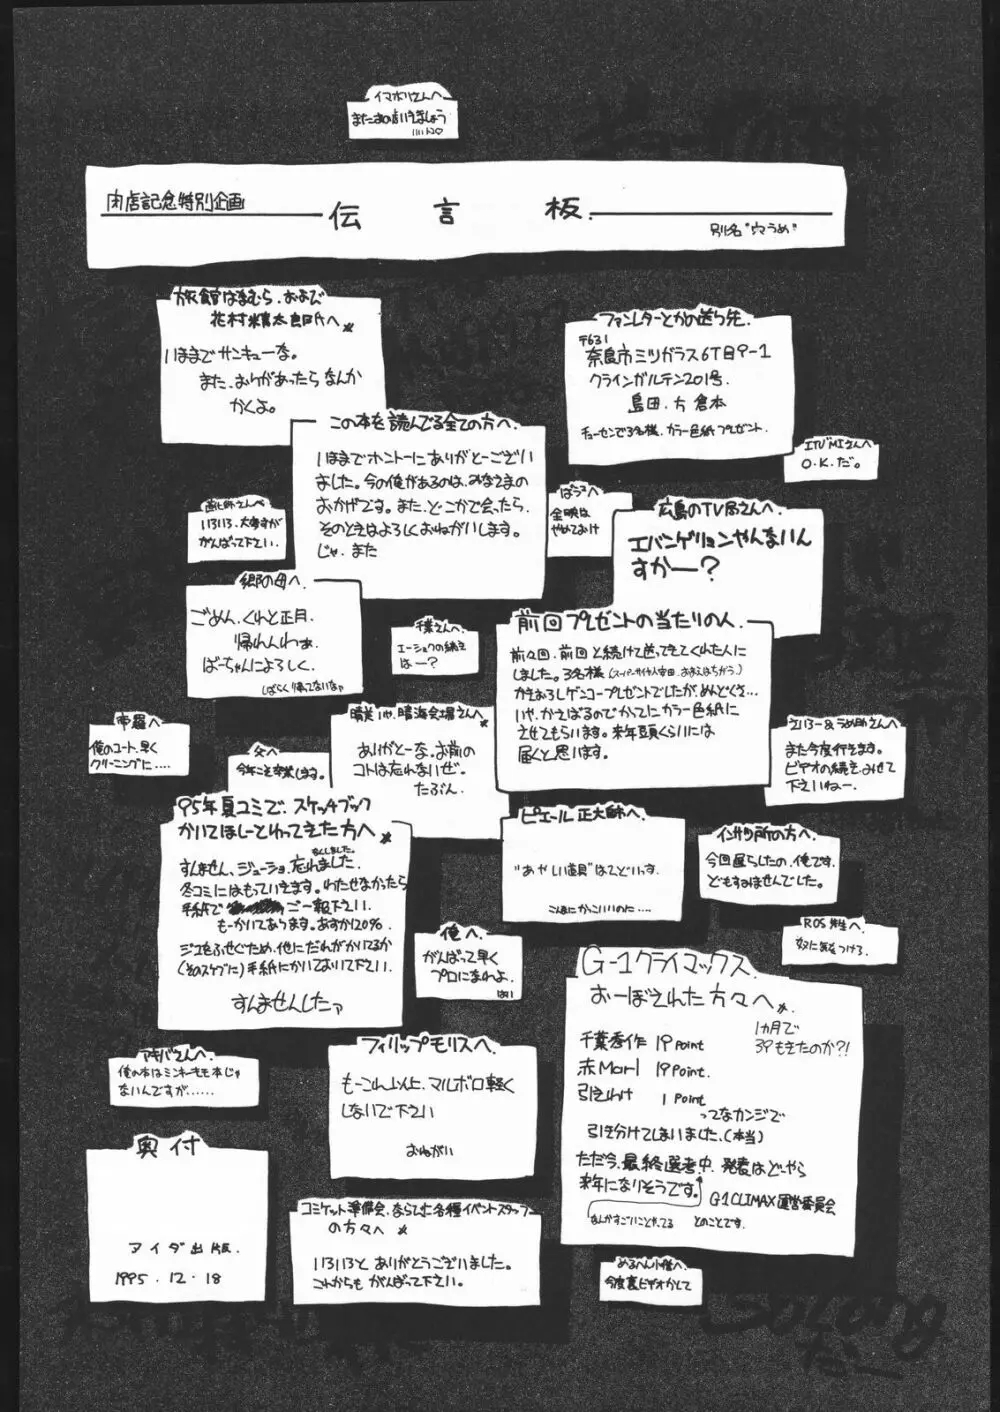 イマホリさんへ
またあの店いきましょう
肉店記念特別企画
伝言板
別名"穴うめ"
旅館はまむら.および
花村
いままでサンキューな。
また、おりがあったらなんか
かくよ。
ファンレターとかの送り先.
〒631
奈良市ミツガラス6丁目9-1
クラインガルテン201号.
島田.方 倉本
チューセンで3名様.カラー色紙プレゼント.
この本を読んでる全ての方へ.
いままでホントーにありがとーござい
ました。今の俺があるのは、みなさまの
おかげです。また、どこかで会ったら、
そのときはよろしくおねがいします。
じゃ、また
ITVMIさんへ
O.K.だ。
いろいろ、大変すが
がんばって下さい.
ばらスへ
金映は
やめておけ
広島のTV局さんへ.
エバンゲリョンやんないん
すかー?
郷の母へ.
ごめん、くれと正月.
帰れんわぁ.
ばーちゃんによろしく.
しばらく帰ってないなァ
千葉さんへ.
エーショクの続き
はー?
前回プレゼントの当たりの人.
前々回、前回と続けて送ってきてくれた人に
しました。3名様(スーパーサイヤ人吉田、おまえはちがう。)
かきおろしゲンコープレゼントでしたが、めんどくさ...
いや、かさばるのでかってにカラー色紙に
させてもらいます。来年頭くらいには
届くと思います。
帝羅へ
俺のコート、早く
クリーニングに....
父へ
今年こそ卒業します。
晴美いや、晴海会場さんへ
ありがとーな、お前の
コトは忘れないぜ.
たぶん.
また今度行きます。
ビデオの続き、みせて
下さいねー.
95年夏コミで、スケッチブック
かいてほしーとゆってきた方へ
すんません、ジューショ、忘れました.
なくしました。
冬コミにはもっていきます。わたせなかったら
手紙で ご一報下さい.
もーかいてあります。あすか120%
ジコをふせぐため、他にだれがかいてるか
(そのスケブに)手紙にかいておいて下さい.
すんませんしたァ
ピエール正大師へ.
"あやしい道具"はてどいっす.
こんなにかっこいいのに....
インサツ所の方へ.
今回遅らしたの、俺です.
どもすみませんでした。
ROS先生へ.
奴に気をつけろ.
俺へ.
がんばって早く
プロになれよ.
はい
G-1クライマックス.
おーぼされた方々へ
1ヵ月で
39もきたのか?!
千葉秀作 19 Point
赤Marl 19 Point.
引きわけ 1 Point
ってなカンジで
引き分けてしまいました.(本当)
ただ今、最終選考中、発表はどーやら
来年になりそうです。
G-1 CLIMAX運営委員会
なんかすごいことやってる とのことです.
アキバさんへ.
俺の本はミンキーモモ本じゃ
ないんですが......
フィリップモリスへ.
もーこれ以上、マルボロ軽く
しないで下さい
おねがい
奥付
アイダ出版.
1995.12.18
コミケット準備会、ならびに各種イベントスタッフ
の方々へ
いろいろと、ありがとうございました。
これからも がんばって下さい。
めるへん小僧へ.
今度裏ビデオかして
So Long
だー